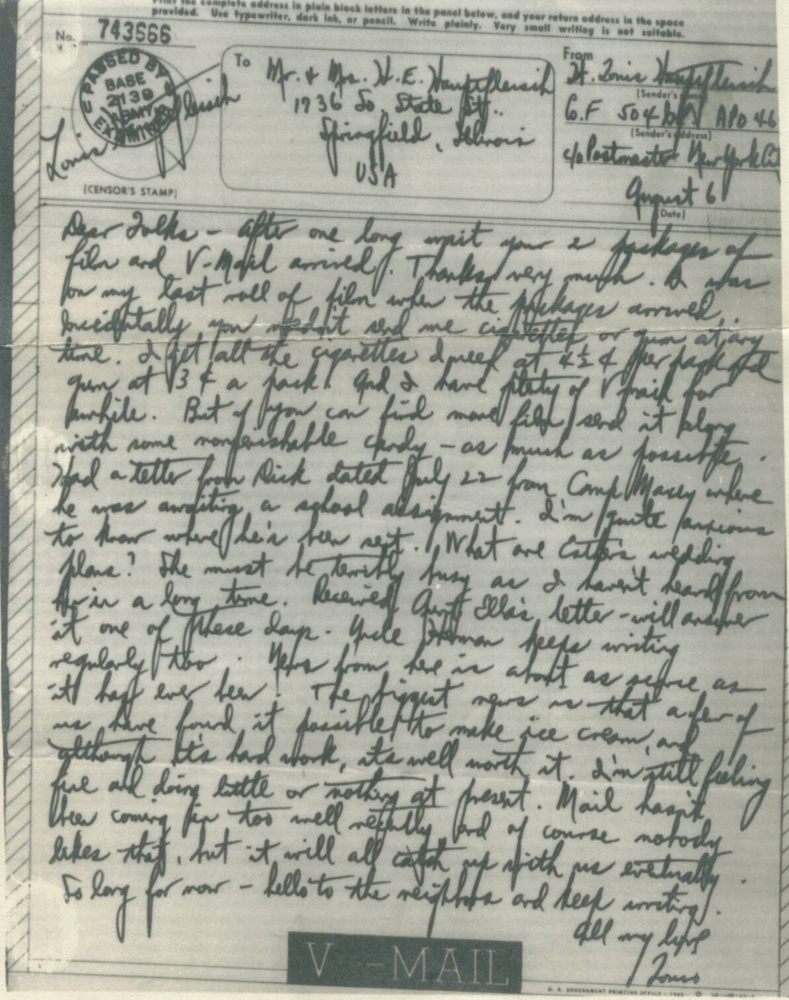 Print the complete address in plain block letters in the panel below, and your return address in the space
provided. Use typewriter, dark ink, or pencil. Write plainly. Very small writing is not suitable.
No. 743566
PASSED BY
BASE
2139
ARMY
EXAMINER
(CENSOR'S STAMP)
To
Mr. & Mrs. H. E. Hauptfleisch
1736 So. State St.
Springfield, Illinois
USA
From
Lt. Louis Hauptfleisch
(Sender's name)
Co. F 504 APO 46
(Sender's address)
c/o Postmaster New York City
August 6
(Date)
Dear Folks – After one long wait your 2 packages of
film and V-Mail arrived. Thanks very much. I was
on my last roll of film when the packages arrived.
Incidentally you needn't send me cigarettes or gum at any
time. I get all the cigarettes I need at 4½ ¢ per pack and
gum at 3 ¢ a pack. And I have plenty of V mail for
awhile. But if you can find more film send it along
with some nonperishable candy – as much as possible.
Had a letter from Dick dated July 22 from Camp Maxey where
he was awaiting a school assignment. I'm quite anxious
to know where he's been sent. What are Esther's wedding
plans? She must be terribly busy as I haven't heard from
her in a long time. Received Aunt Ella's letter – will answer
it one of these days. Uncle Herman keeps writing
regularly too. News from here is about as scarce as
it has ever been. The biggest news is that a few of
us have found it possible to make ice cream, and
although it's hard work, its well worth it. I'm still feeling
fine and doing little or nothing at present. Mail hasn't
been coming in too well recently and of course nobody
likes that, but it will all catch up with us eventually.
So long for now – hello to the neighbors and keep writing.
All my love
Louis
V - - MAIL
U. S. GOVERNMENT PRINTING OFFICE